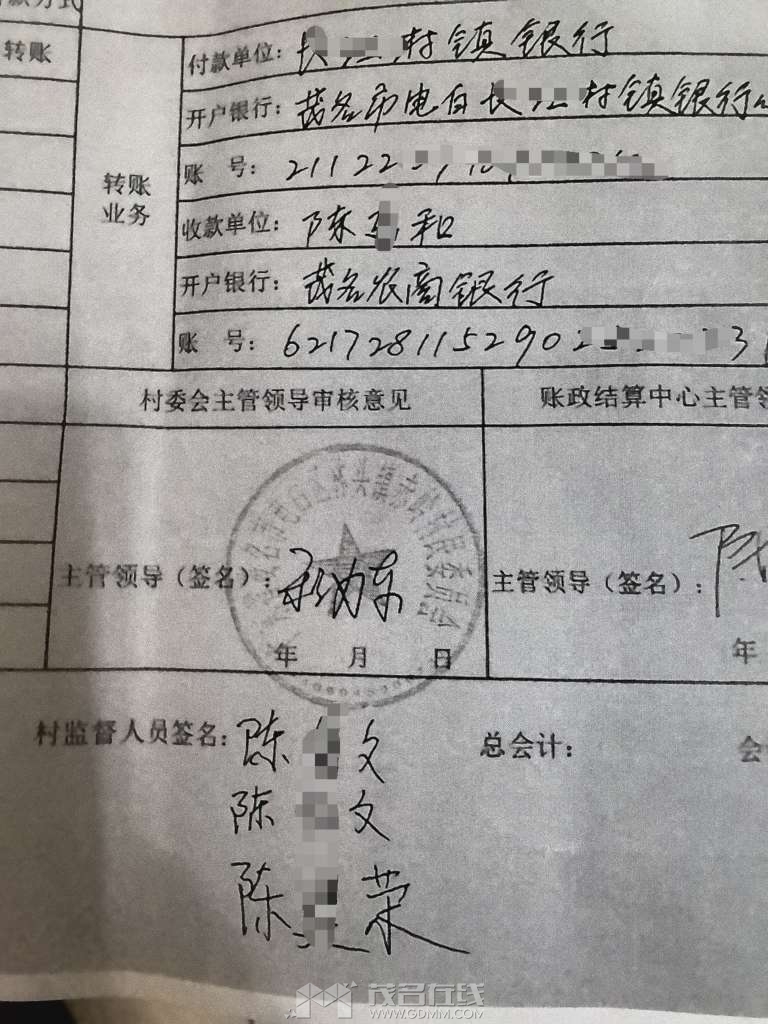 转账
付款单位：长 村镇银行
开户银行：茂名市电白长 村镇银行
转账业务
账 号：21122
收款单位：陈 和
开户银行：茂名农商银行
账 号：621728115290 3
村委会主管领导审核意见
账政结算中心主管领
茂名市电白区 头镇 岭村民委员会
主管领导（签名）：
主管领导（签名）：陈
年 月 日
年
村监督人员签名：陈 文
总会计：
会
陈 文
陈 荣
茂名在线
WWW.GDMM.COM